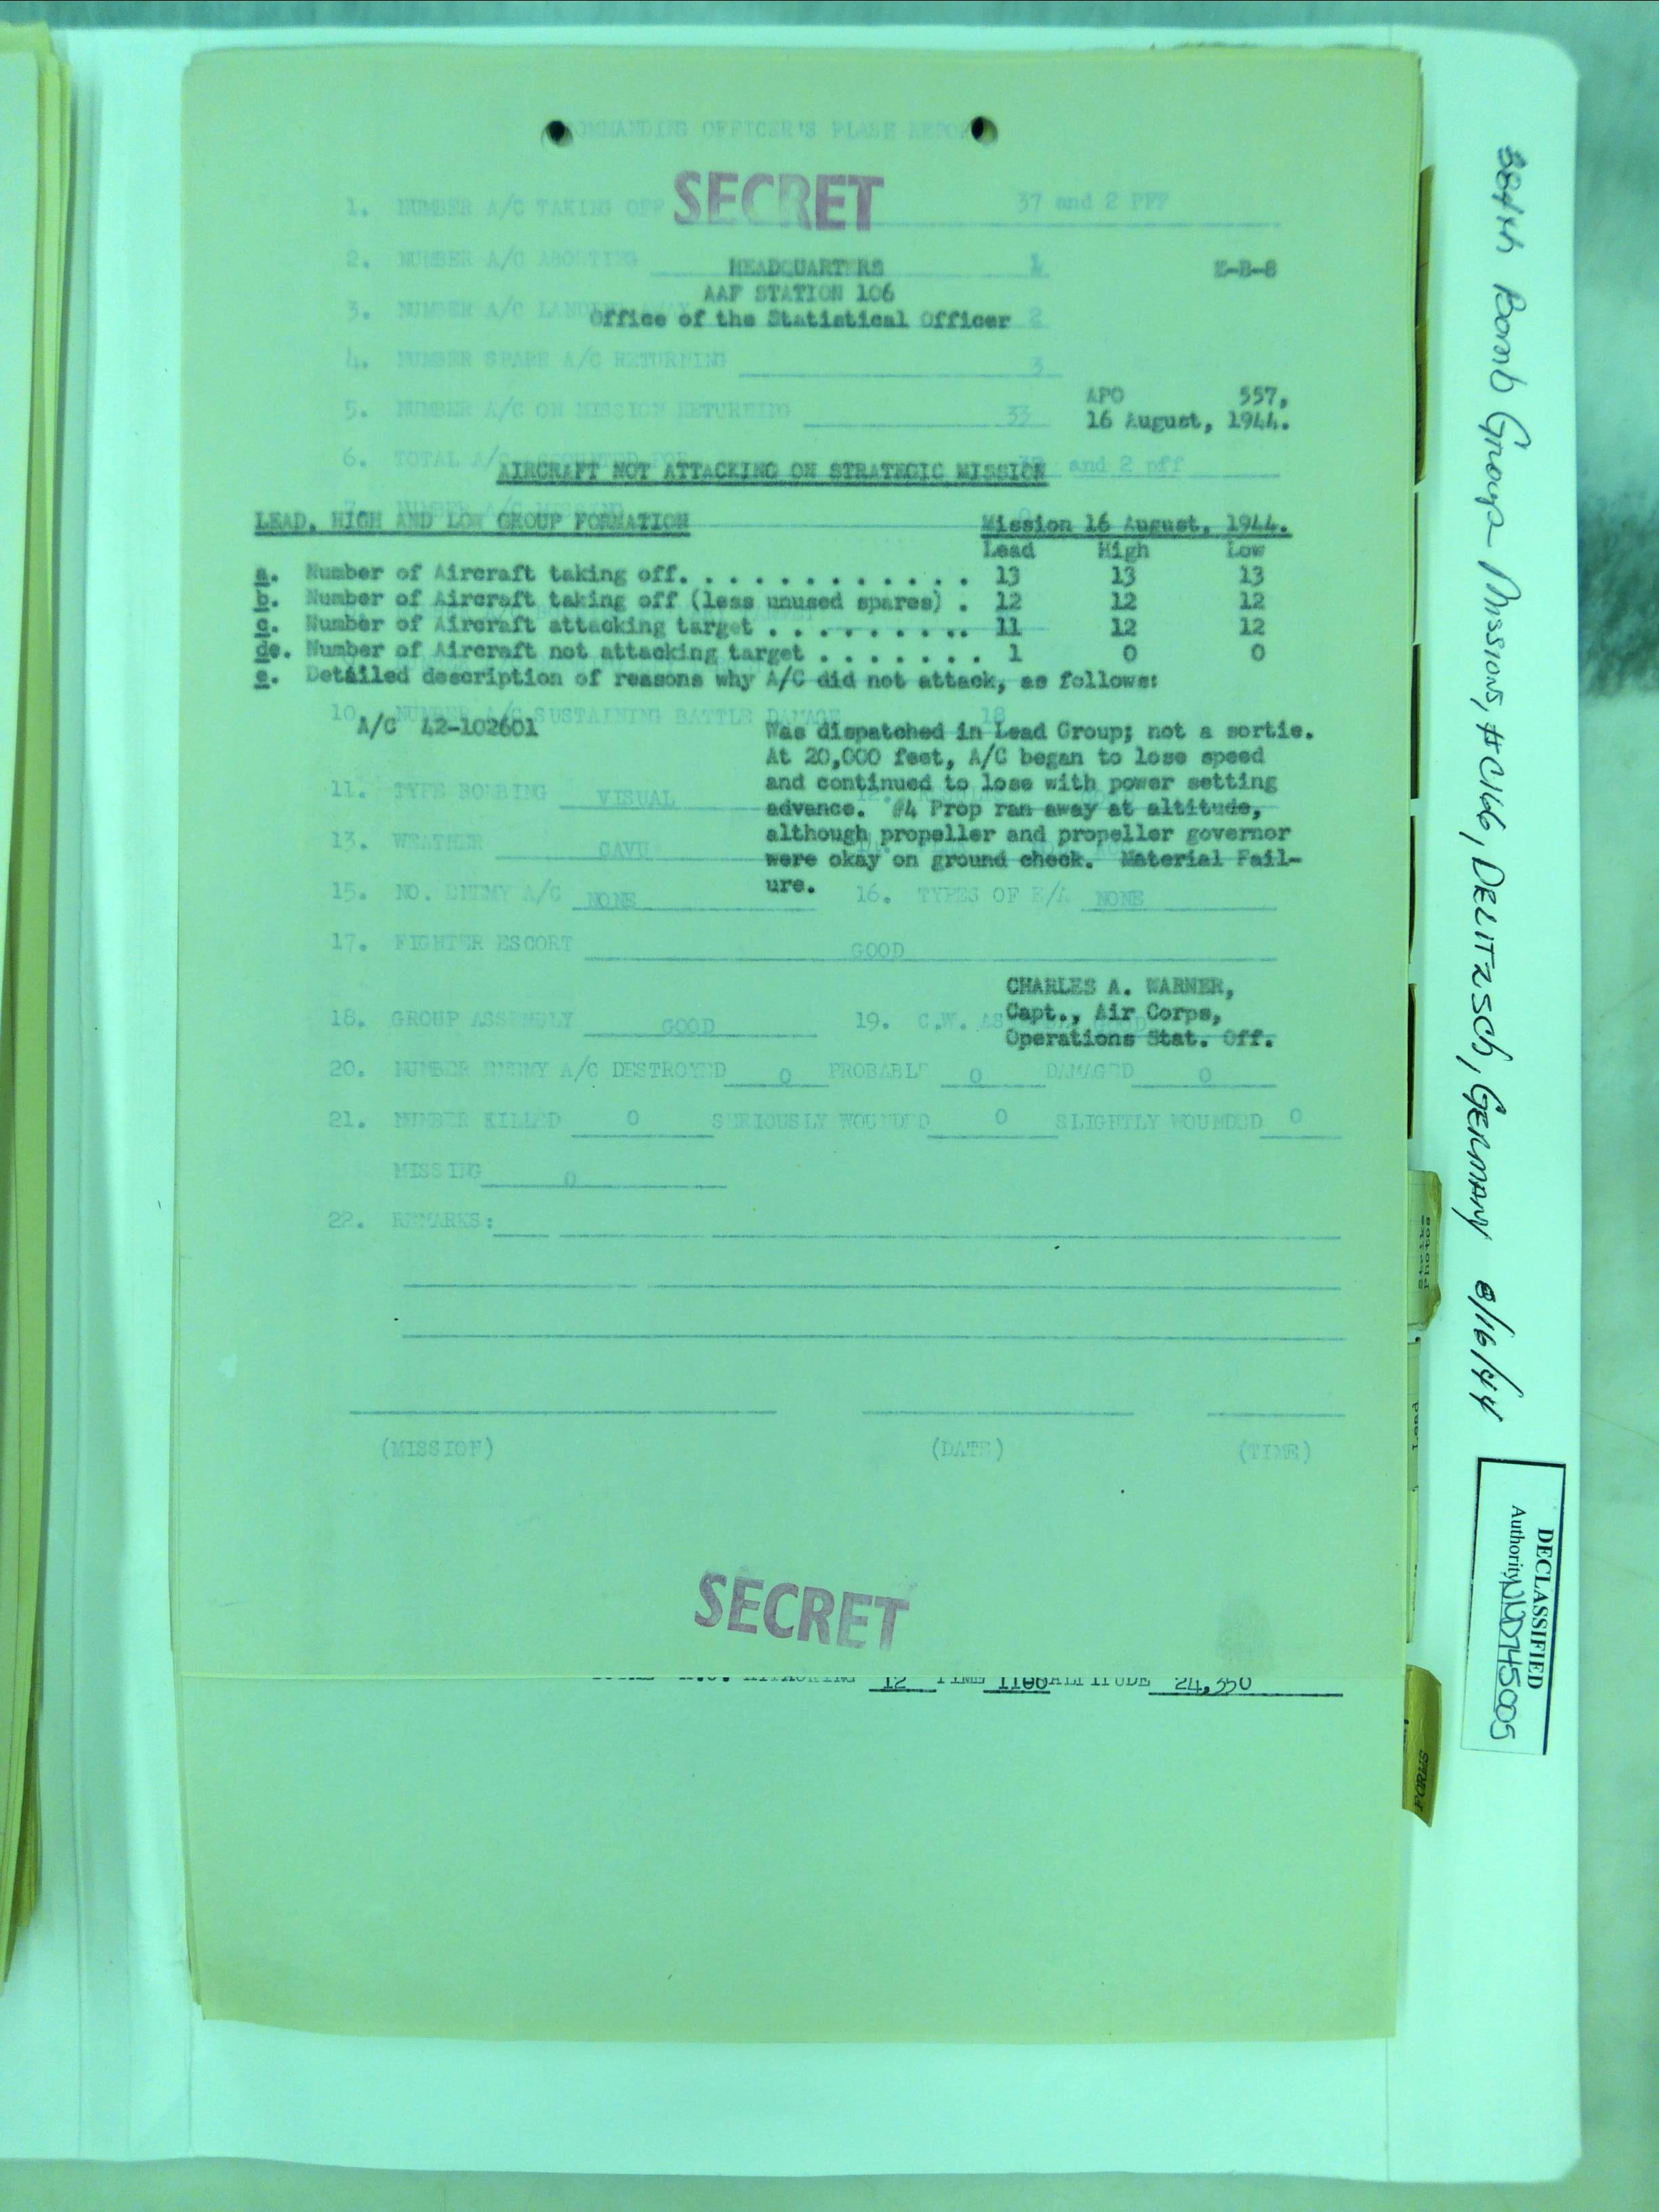 COMMANDING OFFICER'S FLASH REPORT
SECRET
1. NUMBER A/C TAKING OFF 37 and 2 PFF
2. NUMBER A/C ABORTING 1
HEADQUARTERS
E-B-8
AAF STATION 106
3. NUMBER A/C LANDING 2
Office of the Statistical Officer
4. NUMBER SPARE A/C RETURNING 3
APO 557,
5. NUMBER A/C ON MISSION RETURNING 33
16 August, 1944.
6. TOTAL A/C ACCOUNTED FOR 37 and 2 pff
AIRCRAFT NOT ATTACKING ON STRATEGIC MISSION
7. NUMBER A/C MISSING 0
LEAD, HIGH AND LOW GROUP FORMATION Mission 16 August, 1944.
Lead High Low
a. Number of Aircraft taking off. . . . . . . . . . . . 13 13 13
b. Number of Aircraft taking off (less unused spares) . 12 12 12
c. Number of Aircraft attacking target . . . . . . . . .. 11 12 12
de. Number of Aircraft not attacking target . . . . . . . 1 0 0
e. Detailed description of reasons why A/C did not attack, as follows:
10. NUMBER A/C SUSTAINING BATTLE DAMAGE 18
A/C 42-102601 Was dispatched in Lead Group; not a sortie.
At 20,000 feet, A/C began to lose speed
and continued to lose with power setting
11. TYPE BOMBING VISUAL 12.
advance. #4 Prop ran away at altitude,
although propeller and propeller governor
13. WEATHER CAVU
were okay on ground check. Material Fail-
ure.
15. NO. ENEMY A/C NONE 16. TYPES OF E/A NONE
17. FIGHTER ESCORT GOOD
CHARLES A. WARNER,
Capt., Air Corps,
18. GROUP ASSEMBLY GOOD 19. C.W. GOOD
Operations Stat. Off.
20. NUMBER ENEMY A/C DESTROYED 0 PROBABLE 0 DAMAGED 0
21. NUMBER KILLED 0 SERIOUSLY WOUNDED 0 SLIGHTLY WOUNDED 0
MISSING 0
22. REMARKS:
(MISSION) (DATE) (TIME)
SECRET
ATTACKING 12 TIME 1100 ALTITUDE 24,350
384th Bomb Group Missions, #C166, DELITZSCH, GERMANY 8/16/44
DECLASSIFIED
Authority NND745005
Strike
Photos
Lead
FORMS